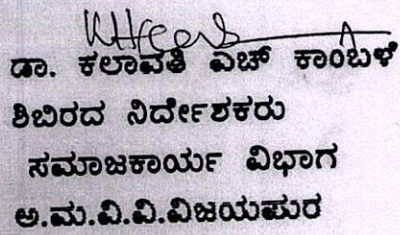 ಡಾ. ಕಲಾವತಿ ಎಚ್ ಕಾಂಬಳೆ
ಶಿಬಿರದ ನಿರ್ದೇಶಕರು
ಸಮಾಜಕಾರ್ಯ ವಿಭಾಗ
ಅ.ಮ.ವಿ.ವಿ.ವಿಜಯಪುರ